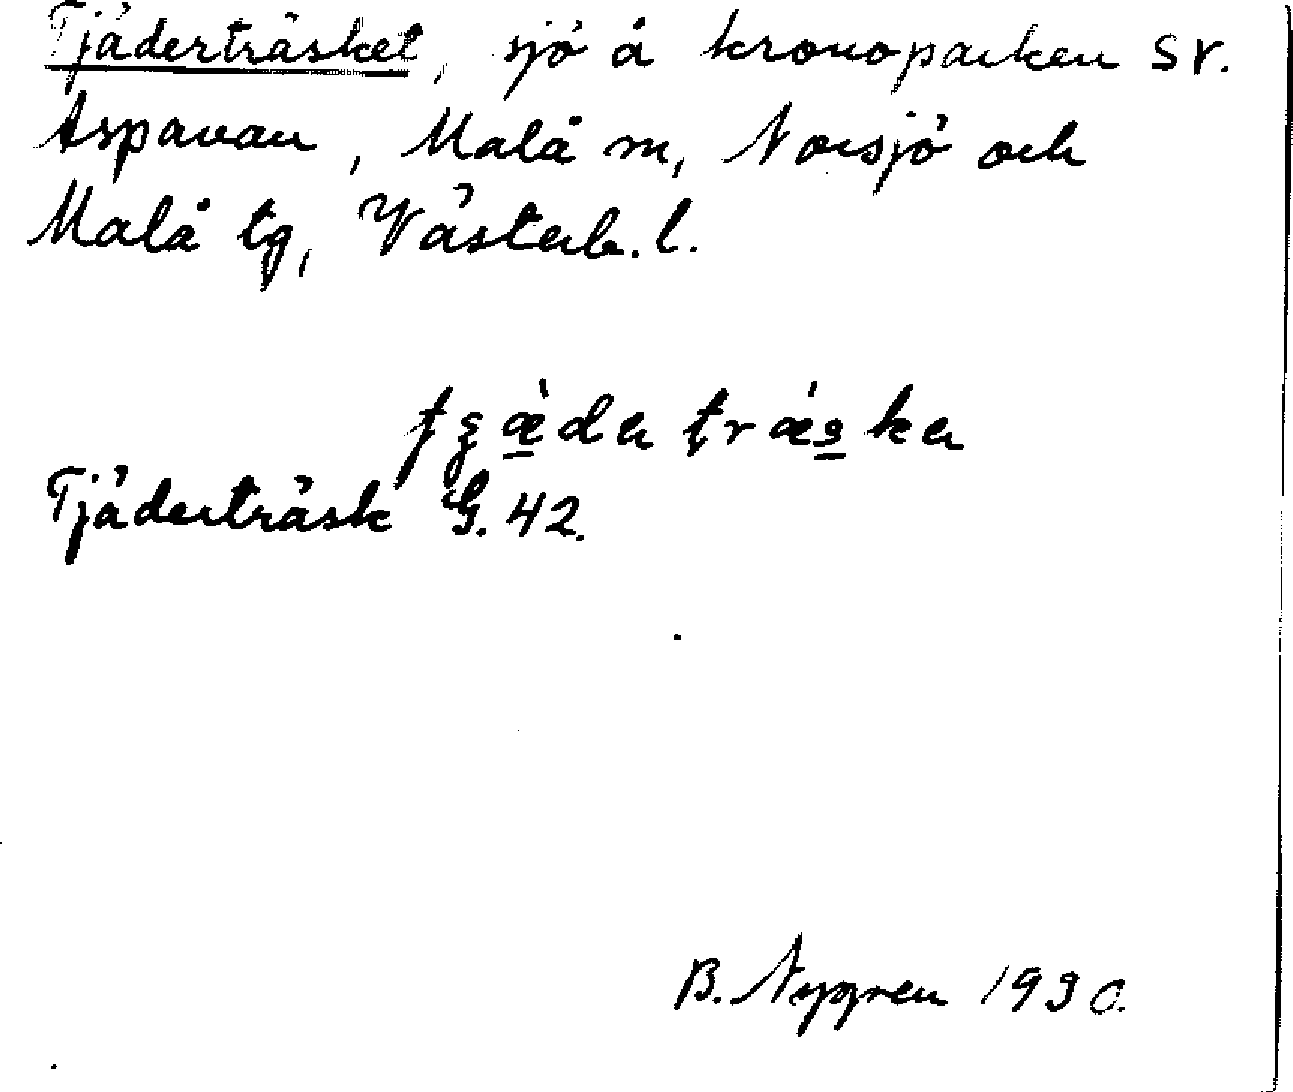 Tjäderträsket, sjö å kronoparken sv.
Aspavan, Malå sn, Norsjö och
Malå tg, Västerb. l.
tʒæ̀da trǽska
Tjäderträsk G. 42.
B. Nygren 1930.